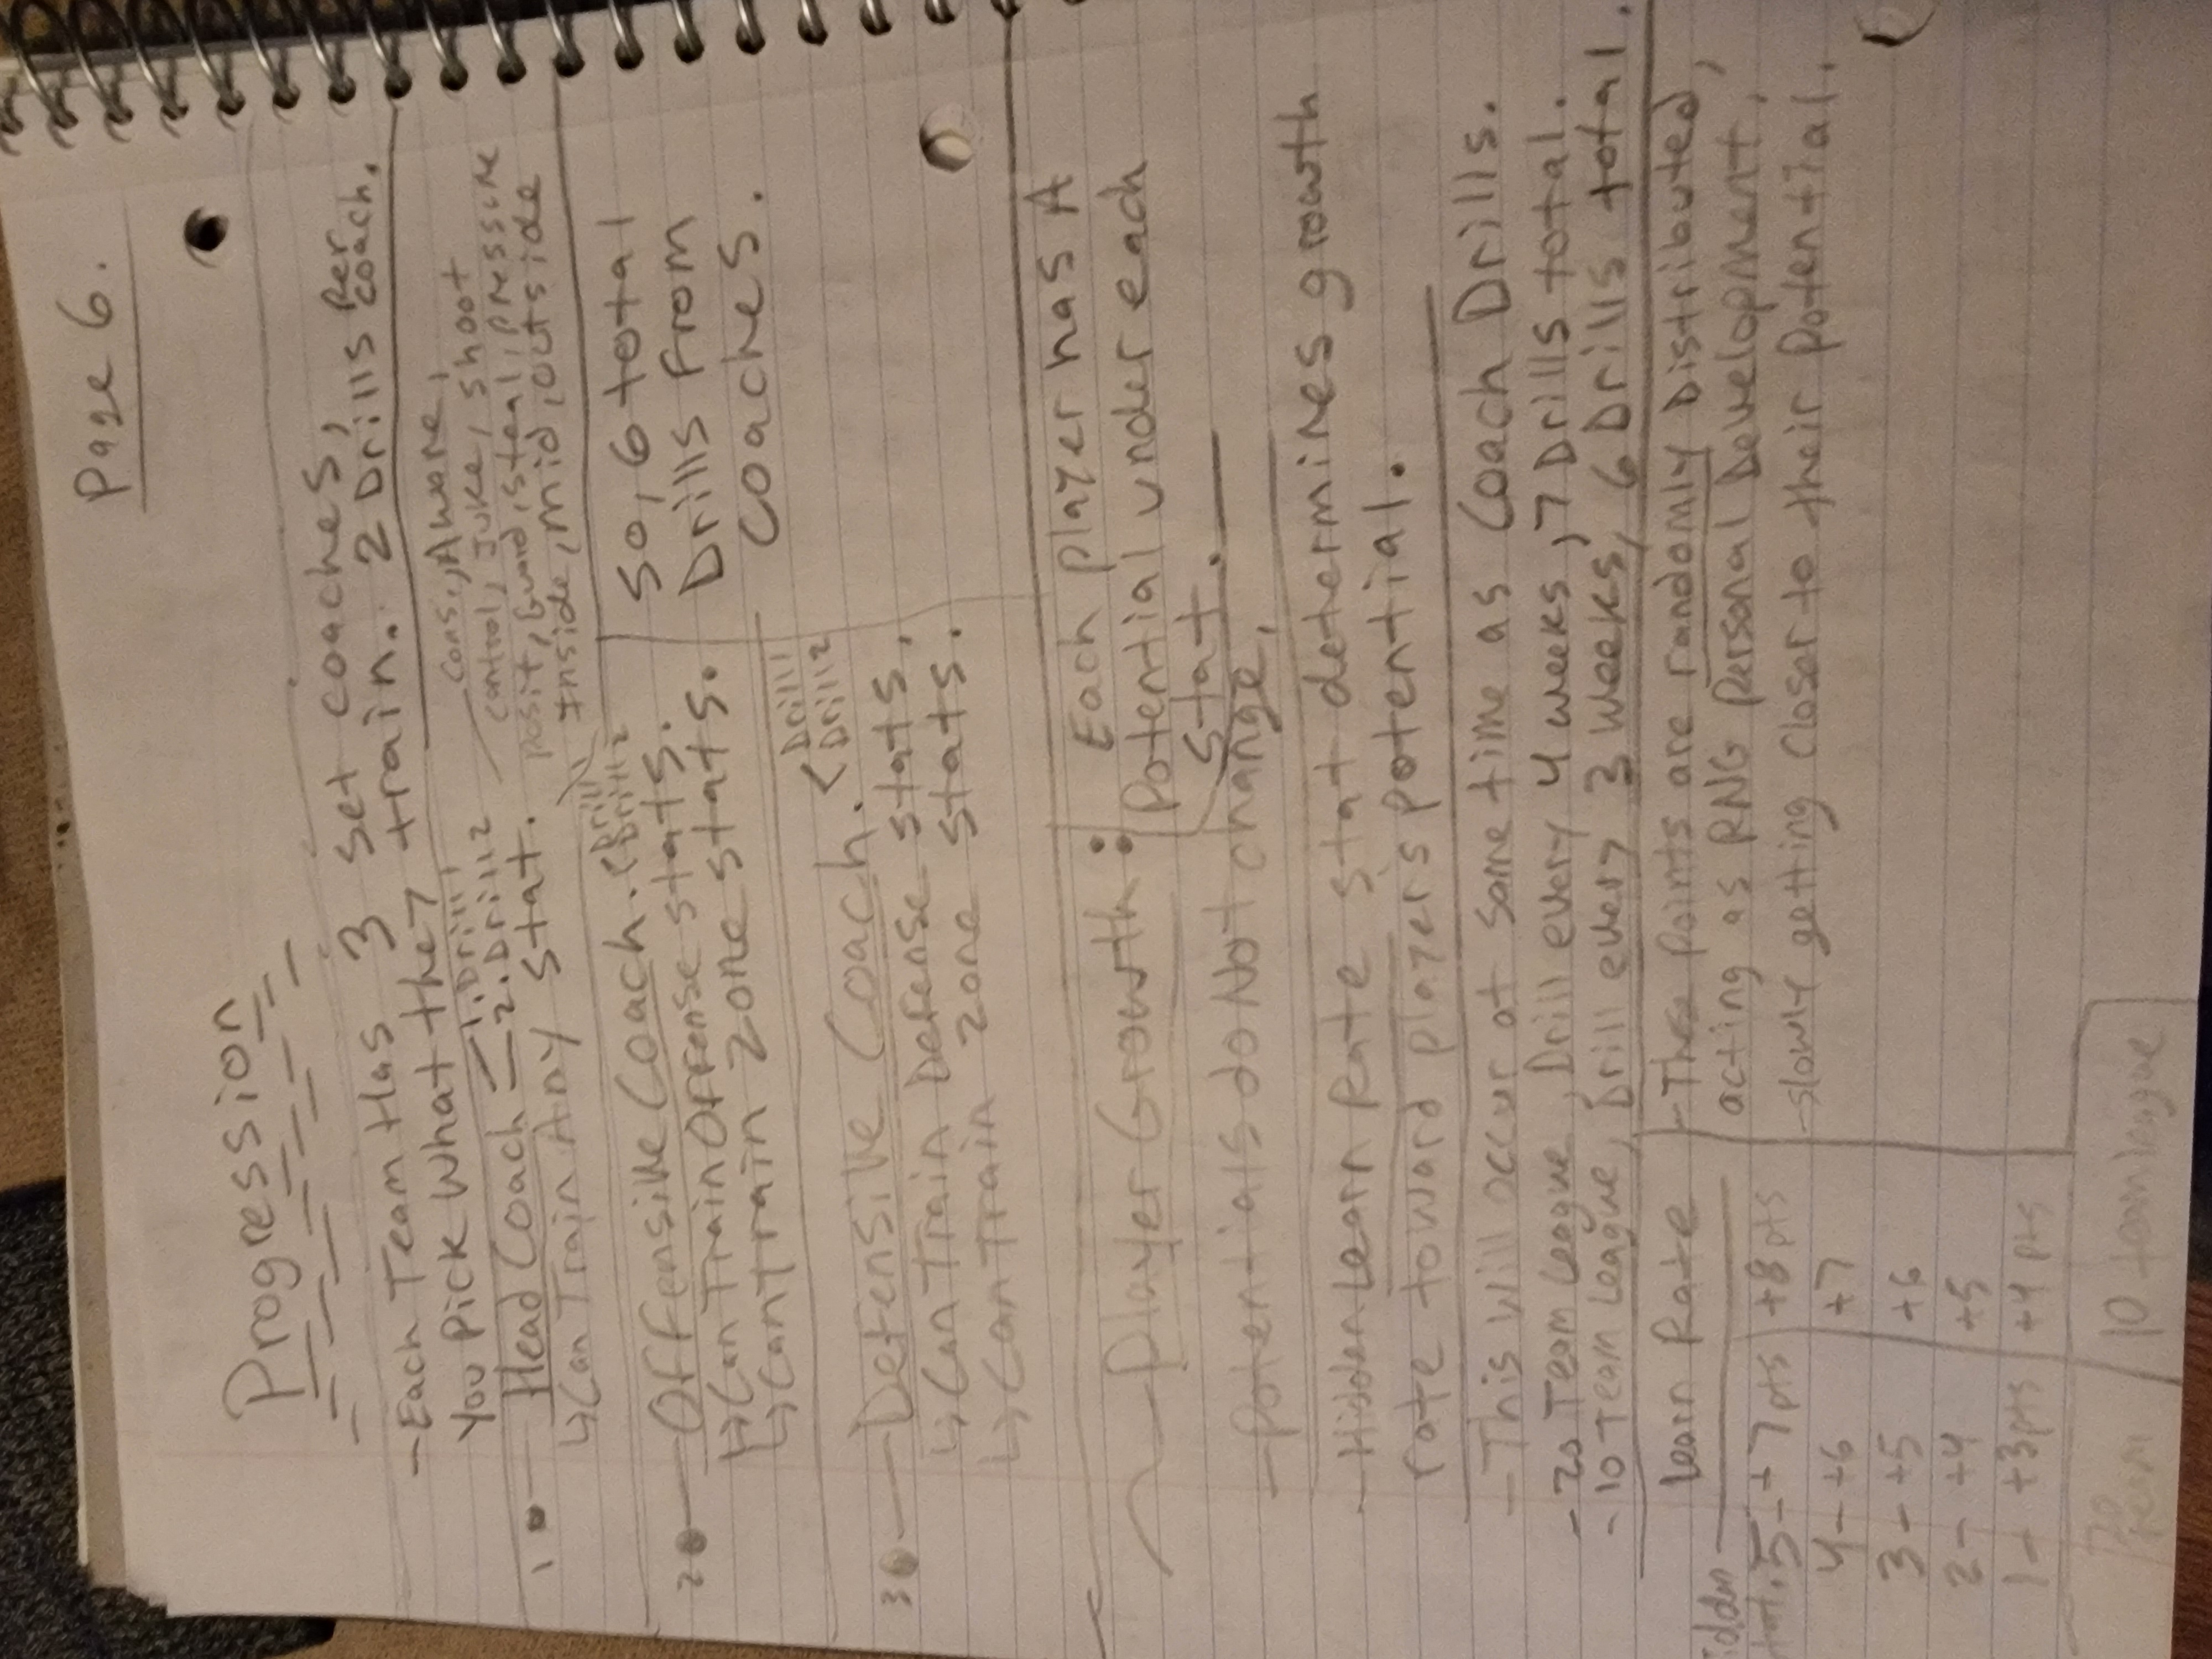 Page 6.
Progression
- Each Team Has 3 set coaches,
You Pick What they train. 2 Drills per coach.
1 • — Head Coach 1. Drill 1
2. Drill 2
↳ Can Train Any stat.
Cons., Aware,
control, Juke, Shoot
Posit, Guard, Steal, Pressure
Inside, mid, outside
2 • — Offensive Coach. < Drill 1
Drill 2
↳ Can Train Offense stats.
↳ Can Train Zone stats.
So, 6 total
Drills From
Coaches.
3 • — Defensive Coach. < Drill 1
Drill 2
↳ Can Train Defense stats.
↳ Can Train Zone stats.
— Player Growth :
Each player has A
Potential under each
stat.
- Potentials do Not change.
- Hidden Learn Rate stat determines growth
rate toward player's potential.
- This Will occur at same time as Coach Drills.
- 20 Team League, Drill every 4 weeks, 7 Drills total.
- 10 Team League, Drill every 3 weeks, 6 Drills total.
Learn Rate
5 - +7 pts +8 pts
4 - +6 +7
3 - +5 +6
2 - +4 +5
1 - +3 pts +4 pts
20 team 10 team league
- These Points are randomly Distributed,
acting as RNG Personal Development.
- slowly getting Closer to their Potential.